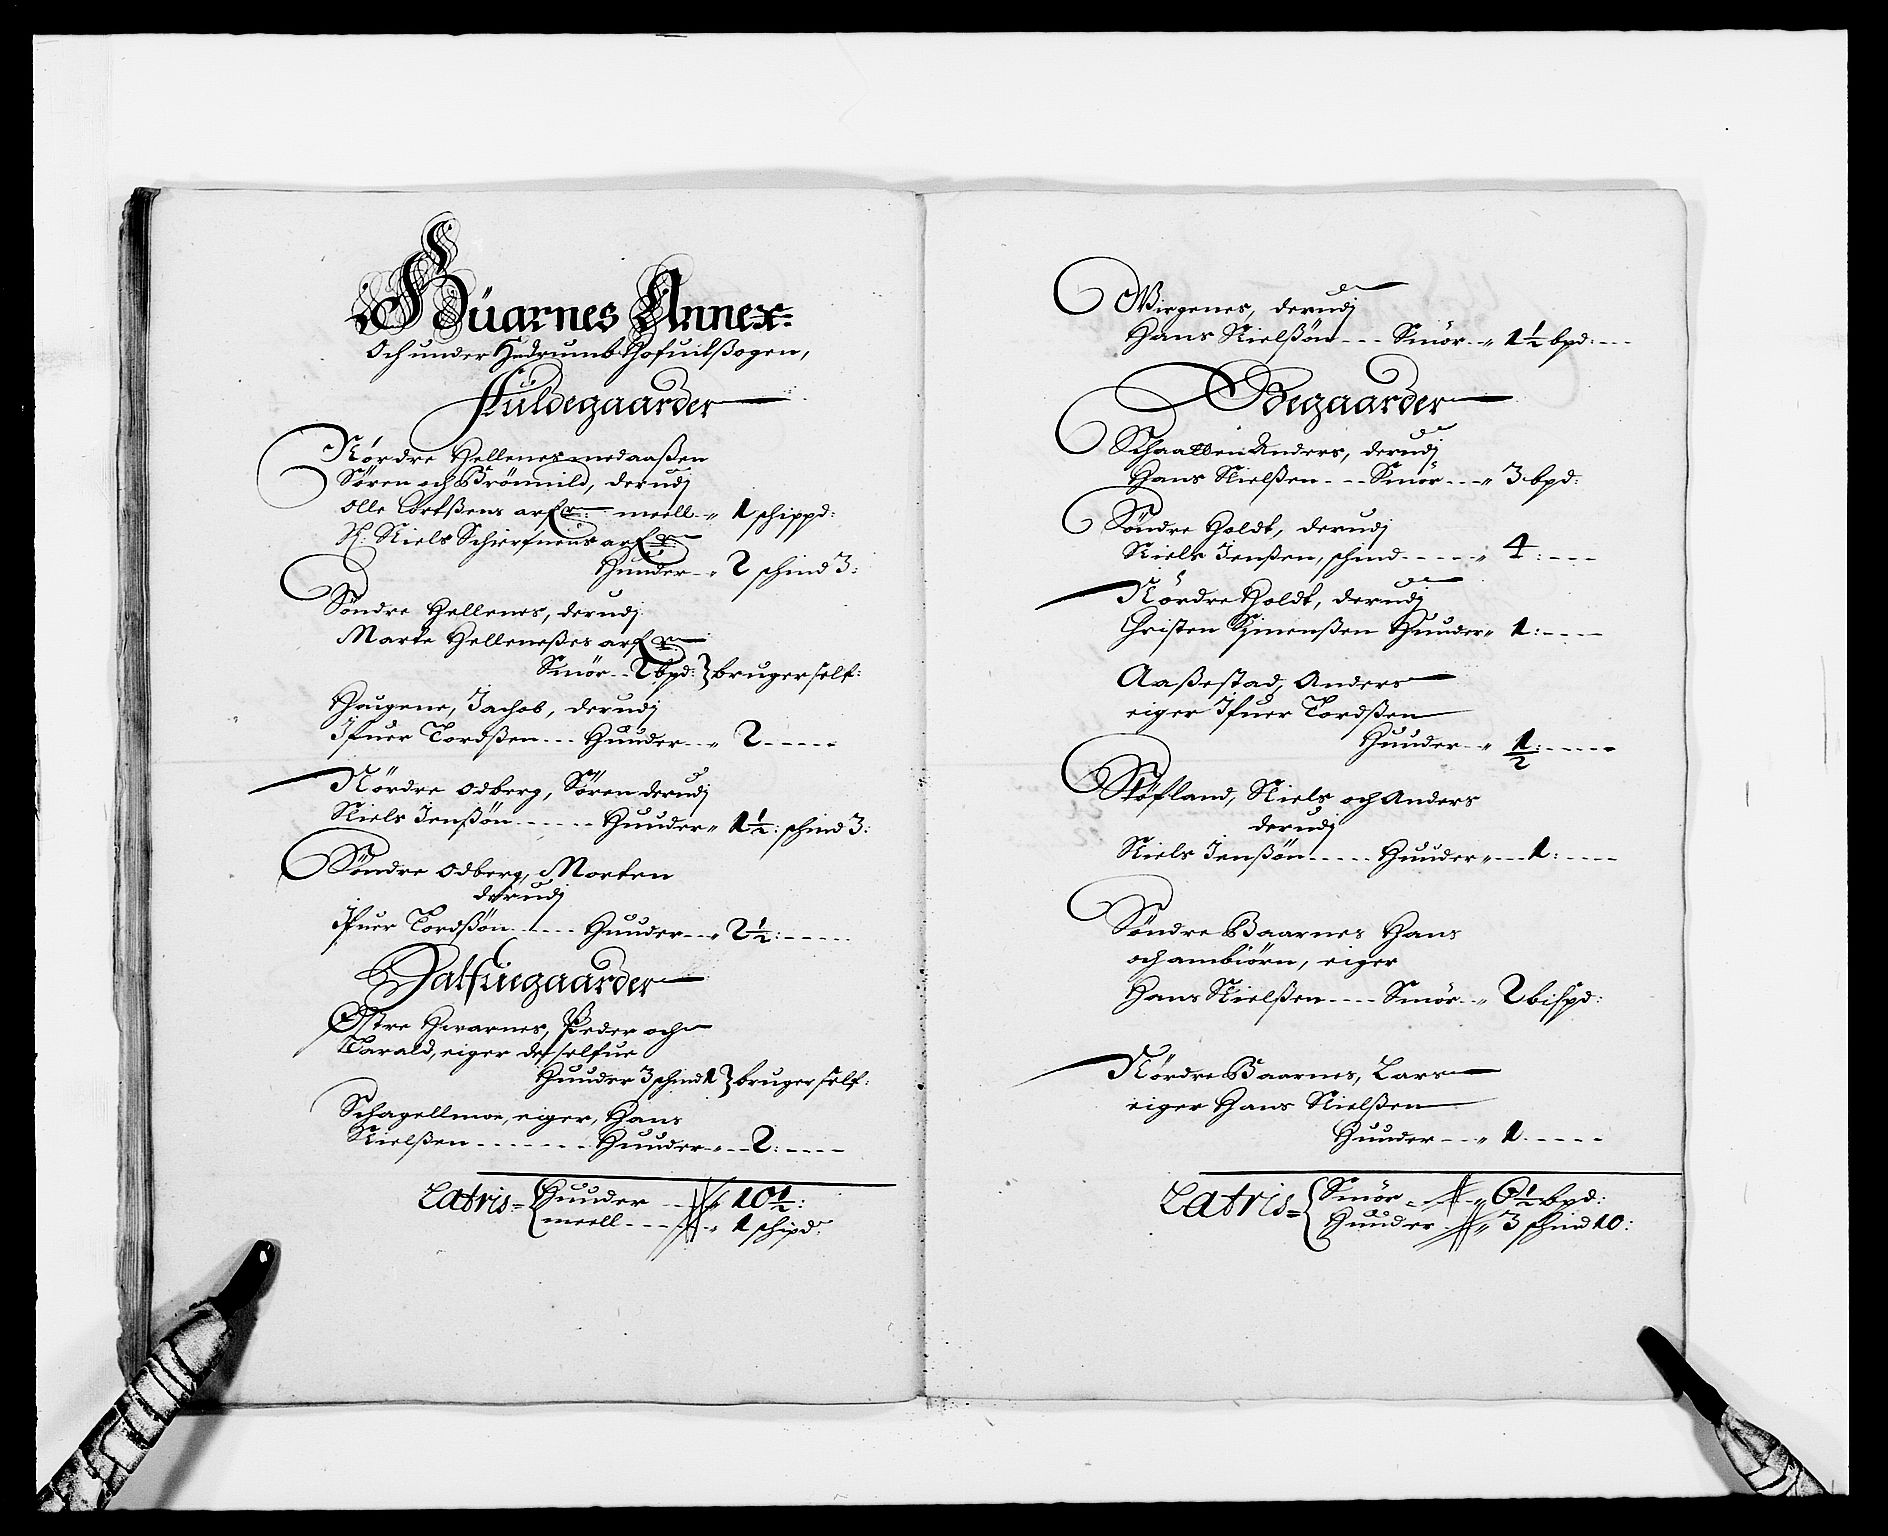 Hüarnes Annex
Och under Hedrumb Hofuitßogen,
Fuldegaarder
Nørdre Hellenes medaaßen
Søren och Brönnild, derudj
Olle Cortßens arf: meell 1 schippd:
H: Niels Schierfnens arf:
Huuder 2 schind 3:
Söndre Hellenes, derudj
Marte Helleneßes arf:
Smör 2 bpd: } bruger self:
Haugene, Jachob, derudj
Ifuer Tordßen Huuder 2
Nördre Odberg, Sören derudj
Niels Jenßön Huuder 1½: schind 3:
Söndre Odberg, Morten
derudj
Ifuer Tordßön Huuder 2½:
Halfuegaarder
Østre Hwarnes, Peder och
Harald, eiger det selfue
Huuder 3 schind 1 } bruger self:
Schagellmoe, eiger, Hans
Nielßen Huuder 2:
Latris = { Huuder 10½:
meell 1 schipd:
Wirgenes, derudj
Hans Nielßön Smör 1½ bpd:
Ødegaarder
Schaatten Anders, derudj
Hans Nielßen Smör 3 bpd:
Söndre Holdt, derudj
Niels Jenßen, schind 4:
Nördre Holdt, derudj
Christen Simenßen Huuder 1:
Aaßestad, Anders
eiger Ifuer Tordßen
Huuder ½:
Støfland, Niels och Anders
derudj
Niels Jenßön Huuder 1:
Söndre Baarnes Hans
och ambiörn, eiger
Hans Nielßen Smör 2 bispd:
Nördre Baarnes, Lars
eiger Hans Nielßen
Huuder 1
Latris = { Smör 6½ bpd:
Huuder 3 schind 10: